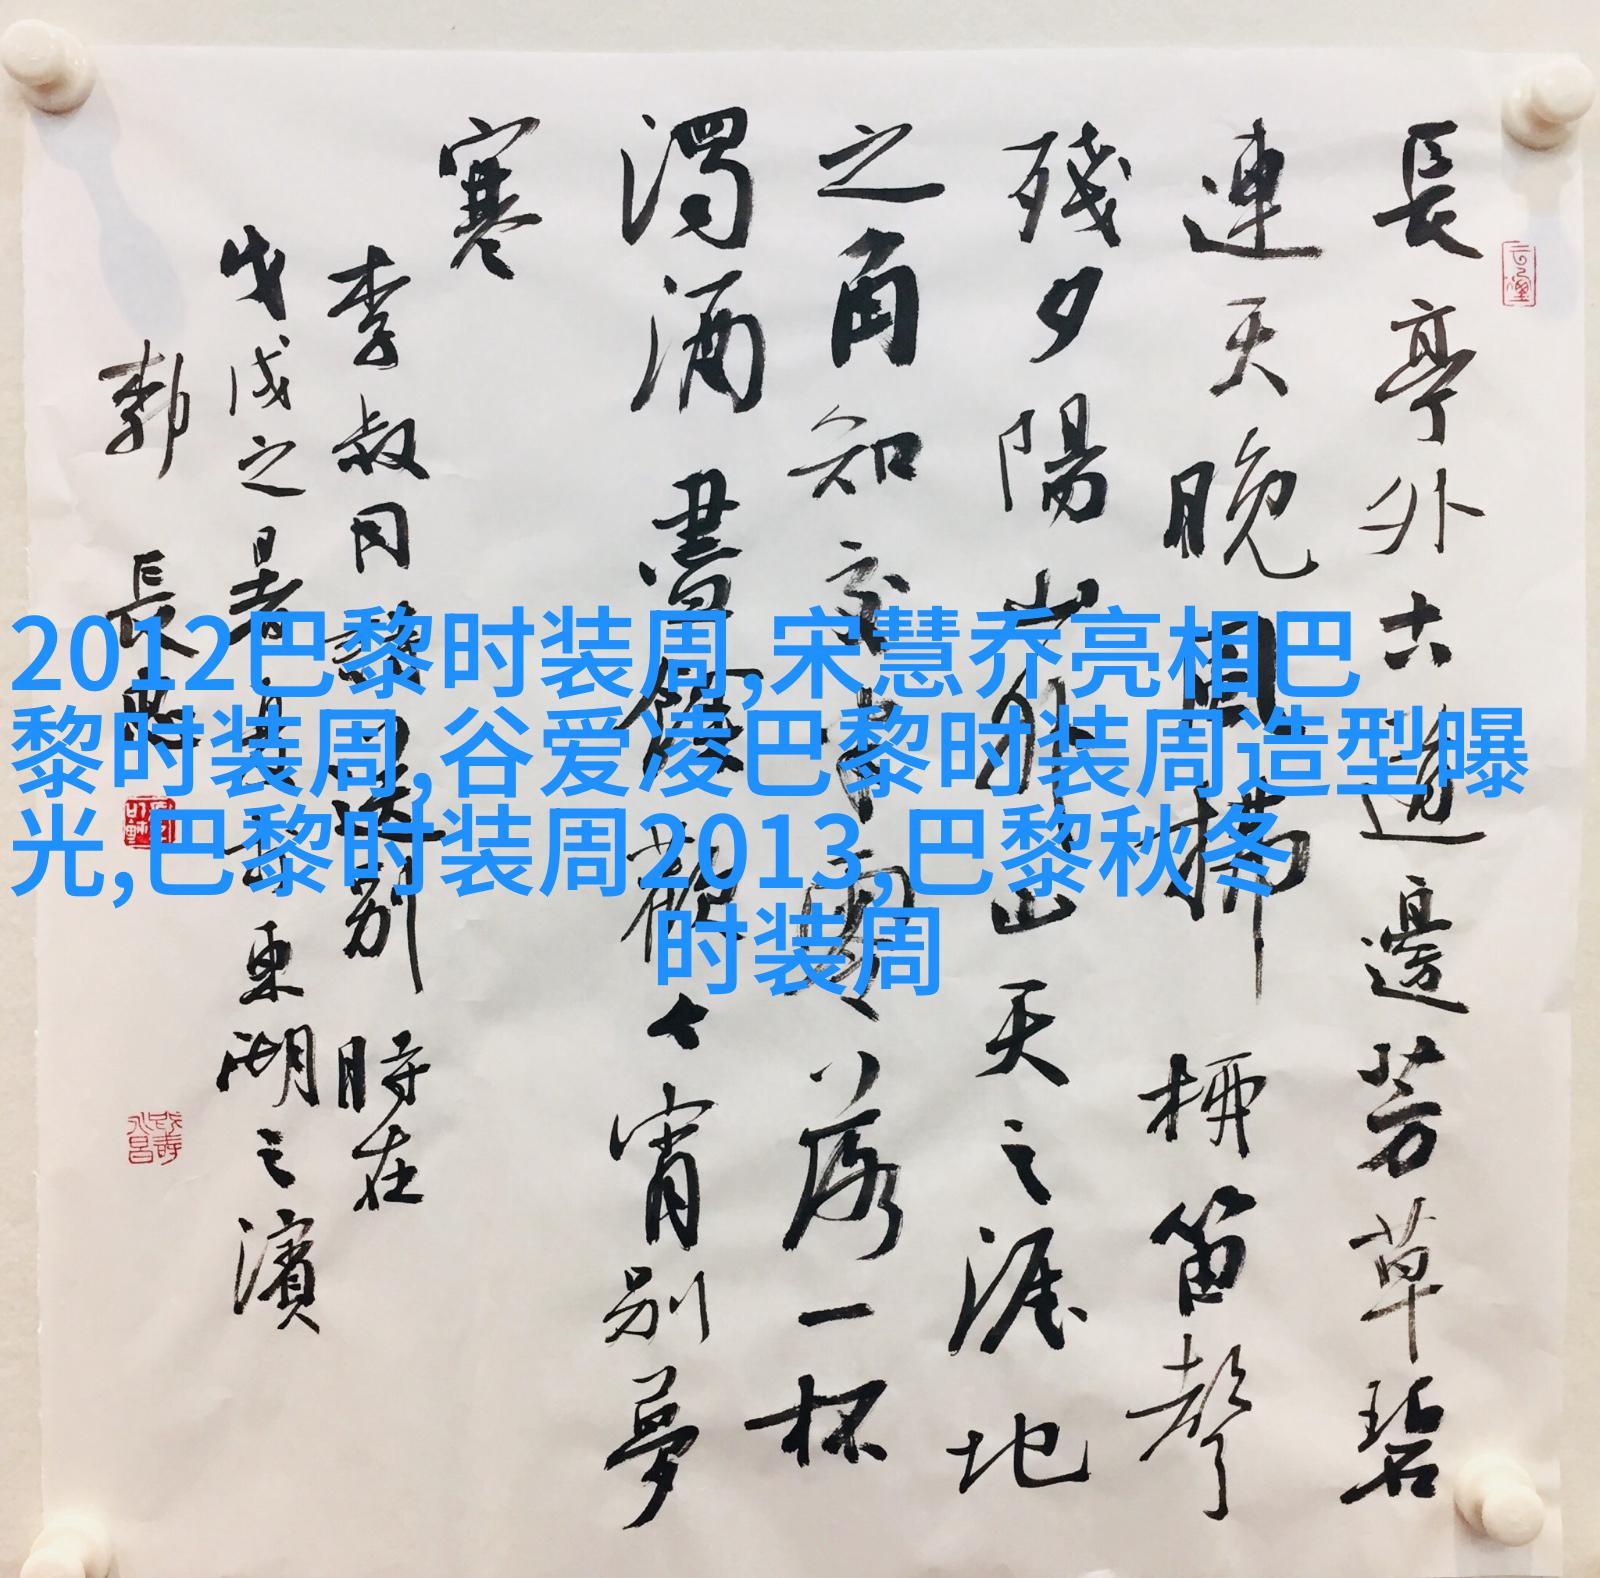 長亭外古道邊芳草碧
連天晚風拂柳笛聲
殘夕陽山外山天之涯地
之角知交半零落一杯
濁酒盡餘歡今宵別夢
寒
李叔同詞送別時在
戊戌之暑東湖之濱
郭長
2012巴黎时装周,宋慧乔亮相巴
黎时装周,谷爱凌巴黎时装周造型曝
光,巴黎时装周2013,巴黎秋冬
时装周